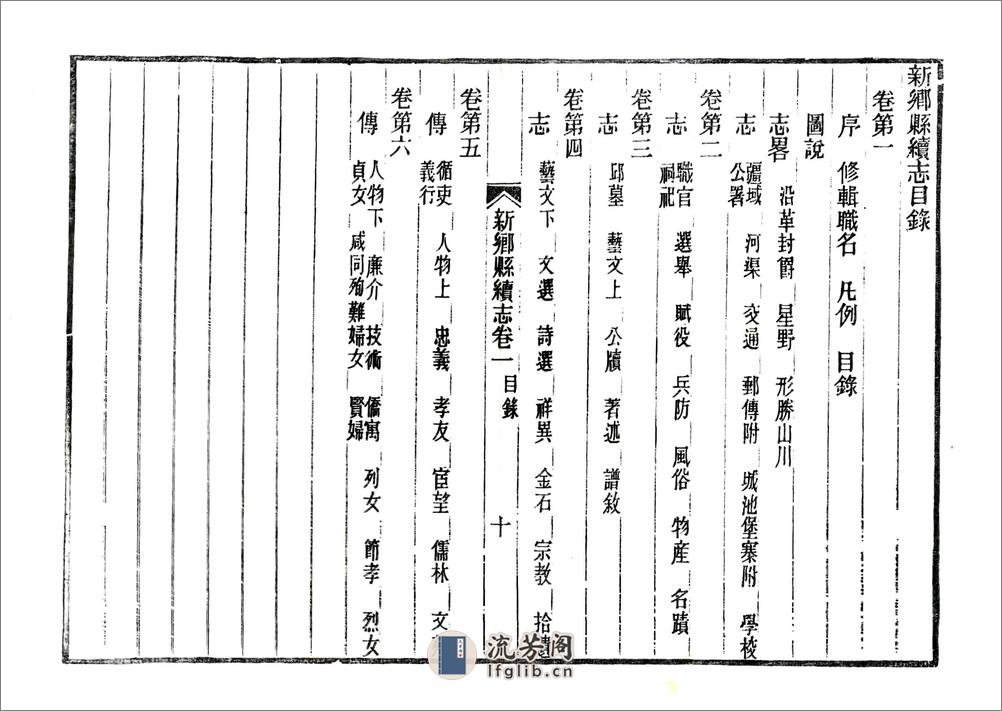 新鄉縣續志目錄
卷第一
序 修輯職名 凡例 目錄
圖說
志畧 沿革封爵 星野 形勝山川
志 疆域 河渠 交通 郵傳附 城池堡寨附 學校
公署
卷第二
志 職官 選舉 賦役 兵防 風俗 物產 名蹟
祠祀
卷第三
志 邱墓 藝文上 公牘 著述 譜敘
卷第四
志 藝文下 文選 詩選 祥異 金石 宗教 拾遺
新鄉縣續志卷一 目錄 十
卷第五
傳 循吏 人物上 忠義 孝友 宦望 儒林 文
義行
卷第六
傳 人物下 廉介 技術 僑寓 列女 節孝 烈女
貞女 咸同殉難婦女 賢婦
流芳阁
lfglib.cn